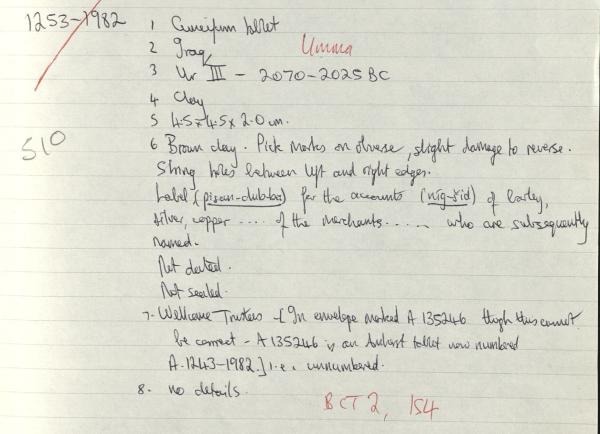 1253-1982
1 Cuneiform tablet
2 Iraq Umma
3 Ur III - 2070-2025 BC
4 Clay
5 4.5 x 4.5 x 2.0 cm.
510
6 Brown clay. Pick marks on obverse, slight damage to reverse.
String holes between left and right edges.
Label (pisan-dub-ba) for the accounts (níg-šid) of barley,
silver, copper .... of the merchants ..... who are subsequently
named.
Not dated.
Not sealed.
7. Wellcome Trustees - [In envelope marked A 135246 though this cannot
be correct - A 135246 is an Amherst tablet now numbered
A.1243-1982.] i.e. unnumbered.
8. no details.
BCT 2, 154